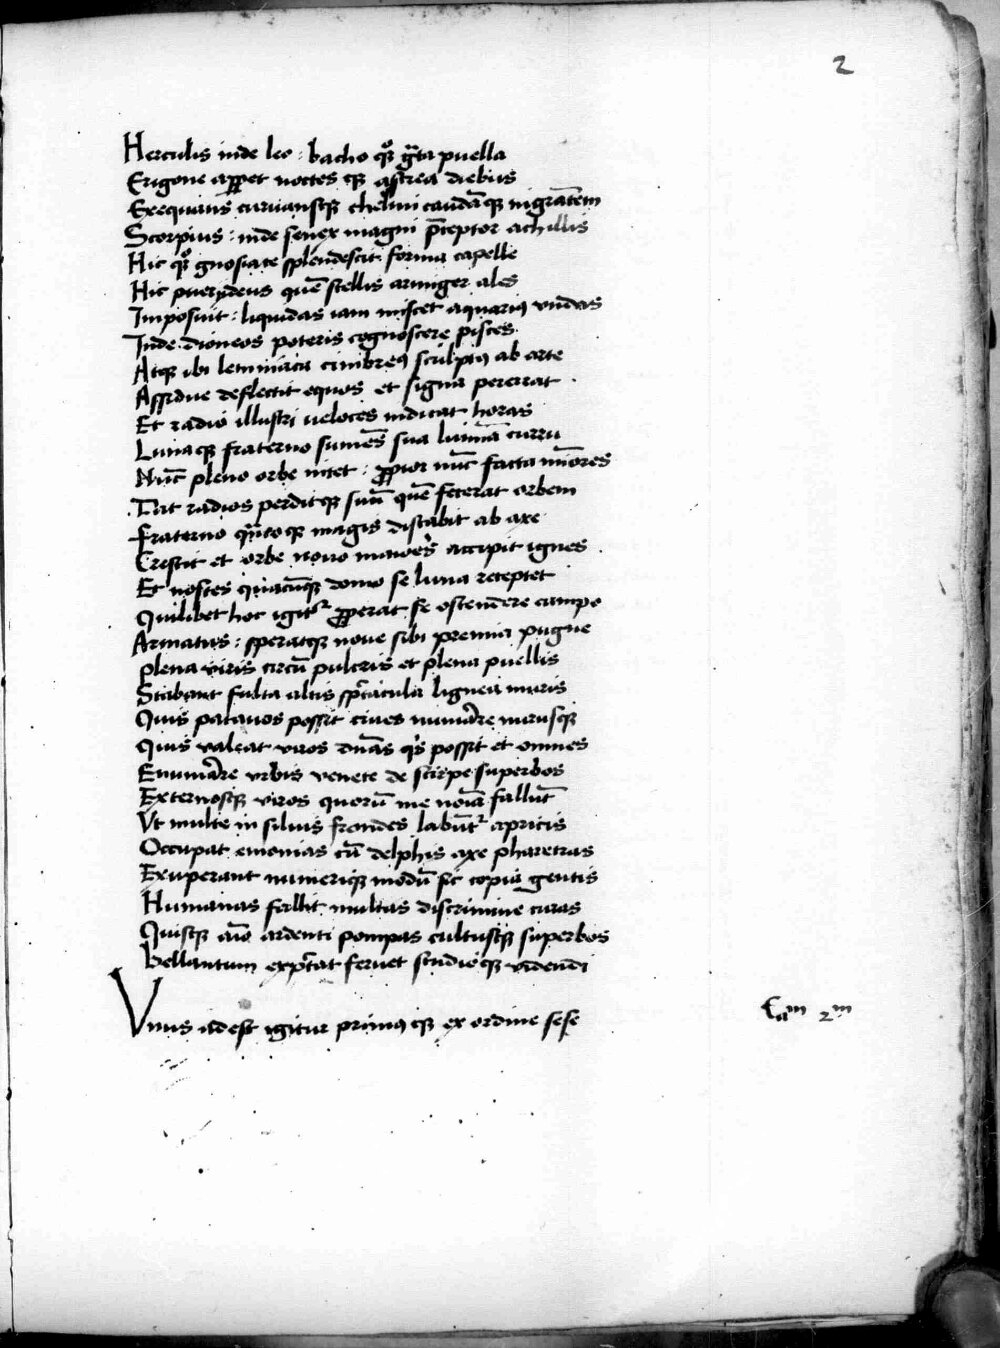 2
Herculis inde leo : bacho qͦꝫ gͣta puella
Erigone apꝑet noctes qꝫ astrea diebus
Exequans curuansqꝫ chelim caudā qꝫ nigrātem
Scorpius : inde senex magni p̄ceptor achillis
Hic qͦꝫ gnosiace splendescit forma capelle
Hic puer ydeus quē stellis armiger ales
Imposuit : liquidas iam miscet aquariꝰ vndas
Inde dioneos poteris cognoscere pisces
Atqꝫ ibi lemniaca cimbreꝰ sculptꝰ ab arte
Assidue deflectit equos et signa pererrat
Et radio illustri ueloces indicat horas
Lunaqꝫ fraterno sumēs sua lumīa curru
Nūc pleno orbe nitet : ꝓpior nūc facta mīores
Dat radios perditqꝫ suū quē fecerat orbem
Fraterno qͣntoqꝫ magis distabit ab axe
Crescit et orbe nouo maiores accipit ignes
Et nostes quacūqꝫ domo se luna receptet
Quilibet hoc igitᷣ ꝓperat se ostendere campo
Armatus : speratqꝫ noue sibi premia pugne
Plena viris circū pulcris et plena puellis
Stabant fulta altis spectacula lignea muris
Quis patauos possit ciues numerare nurusqꝫ
Quis valeat viros dn̄as qͥs possit et omnes
Enumerare vrbis venete de stirpe superbos
Externosqꝫ viros quorū me noīa fallūt
Vt multe in siluis frondes labūtᷣ apricis
Occupat emonias cū delphis axe pharetras
Exuperant numeriqꝫ modū sic copia gentis
Humanas fallit multas discrimine curas
Quisqꝫ aīo ardenti pompas cultusqꝫ superbos
Bellantum expectat feruet studioqꝫ videndi
Vnus adest igitur primꝰ qꝫ ex ordine sese
Caᵐ 2ᵐ